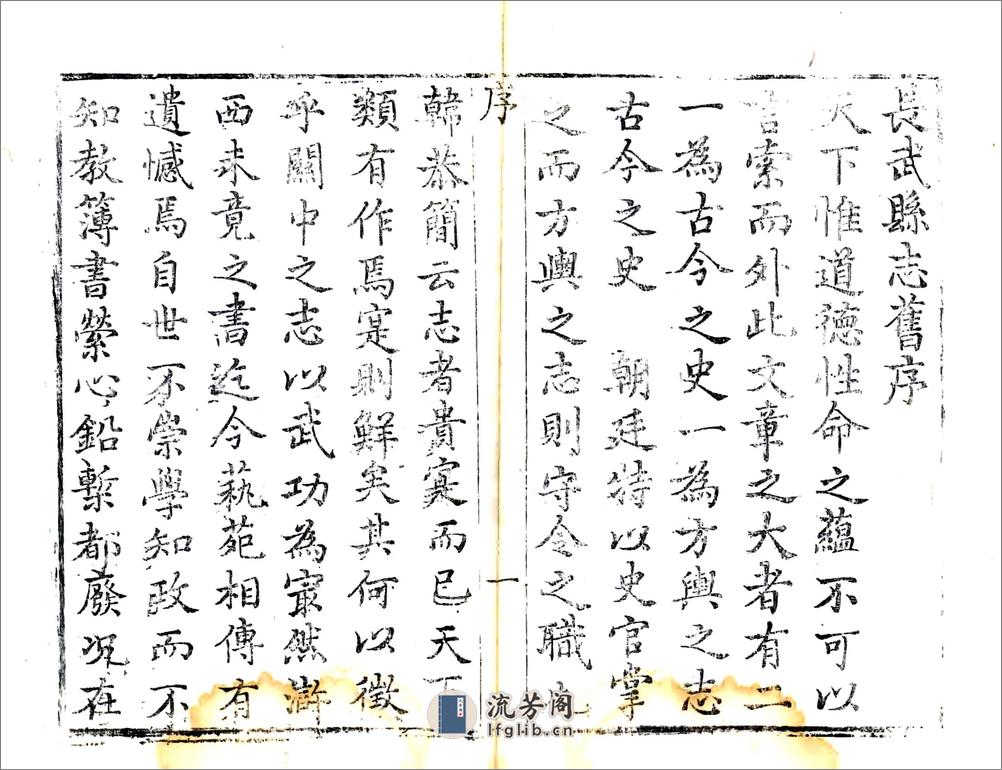 長武縣志舊序
天下惟道德性命之蘊不可以
言索而外此文章之大者有二
一為古今之史一為方輿之志
古今之史　朝廷特以史官掌
之而方輿之志則守令之職
序
一
韓恭簡云志者貴實而已天下
類有作焉寔則鮮矣其何以徵
乎關中之志以武功為冣然滸
西未竟之書迄今蓺苑相傳有
遺憾焉自世不崇學知政而不
知教簿書縈心鉛槧都廢况在
流芳阁
lfglib.cn